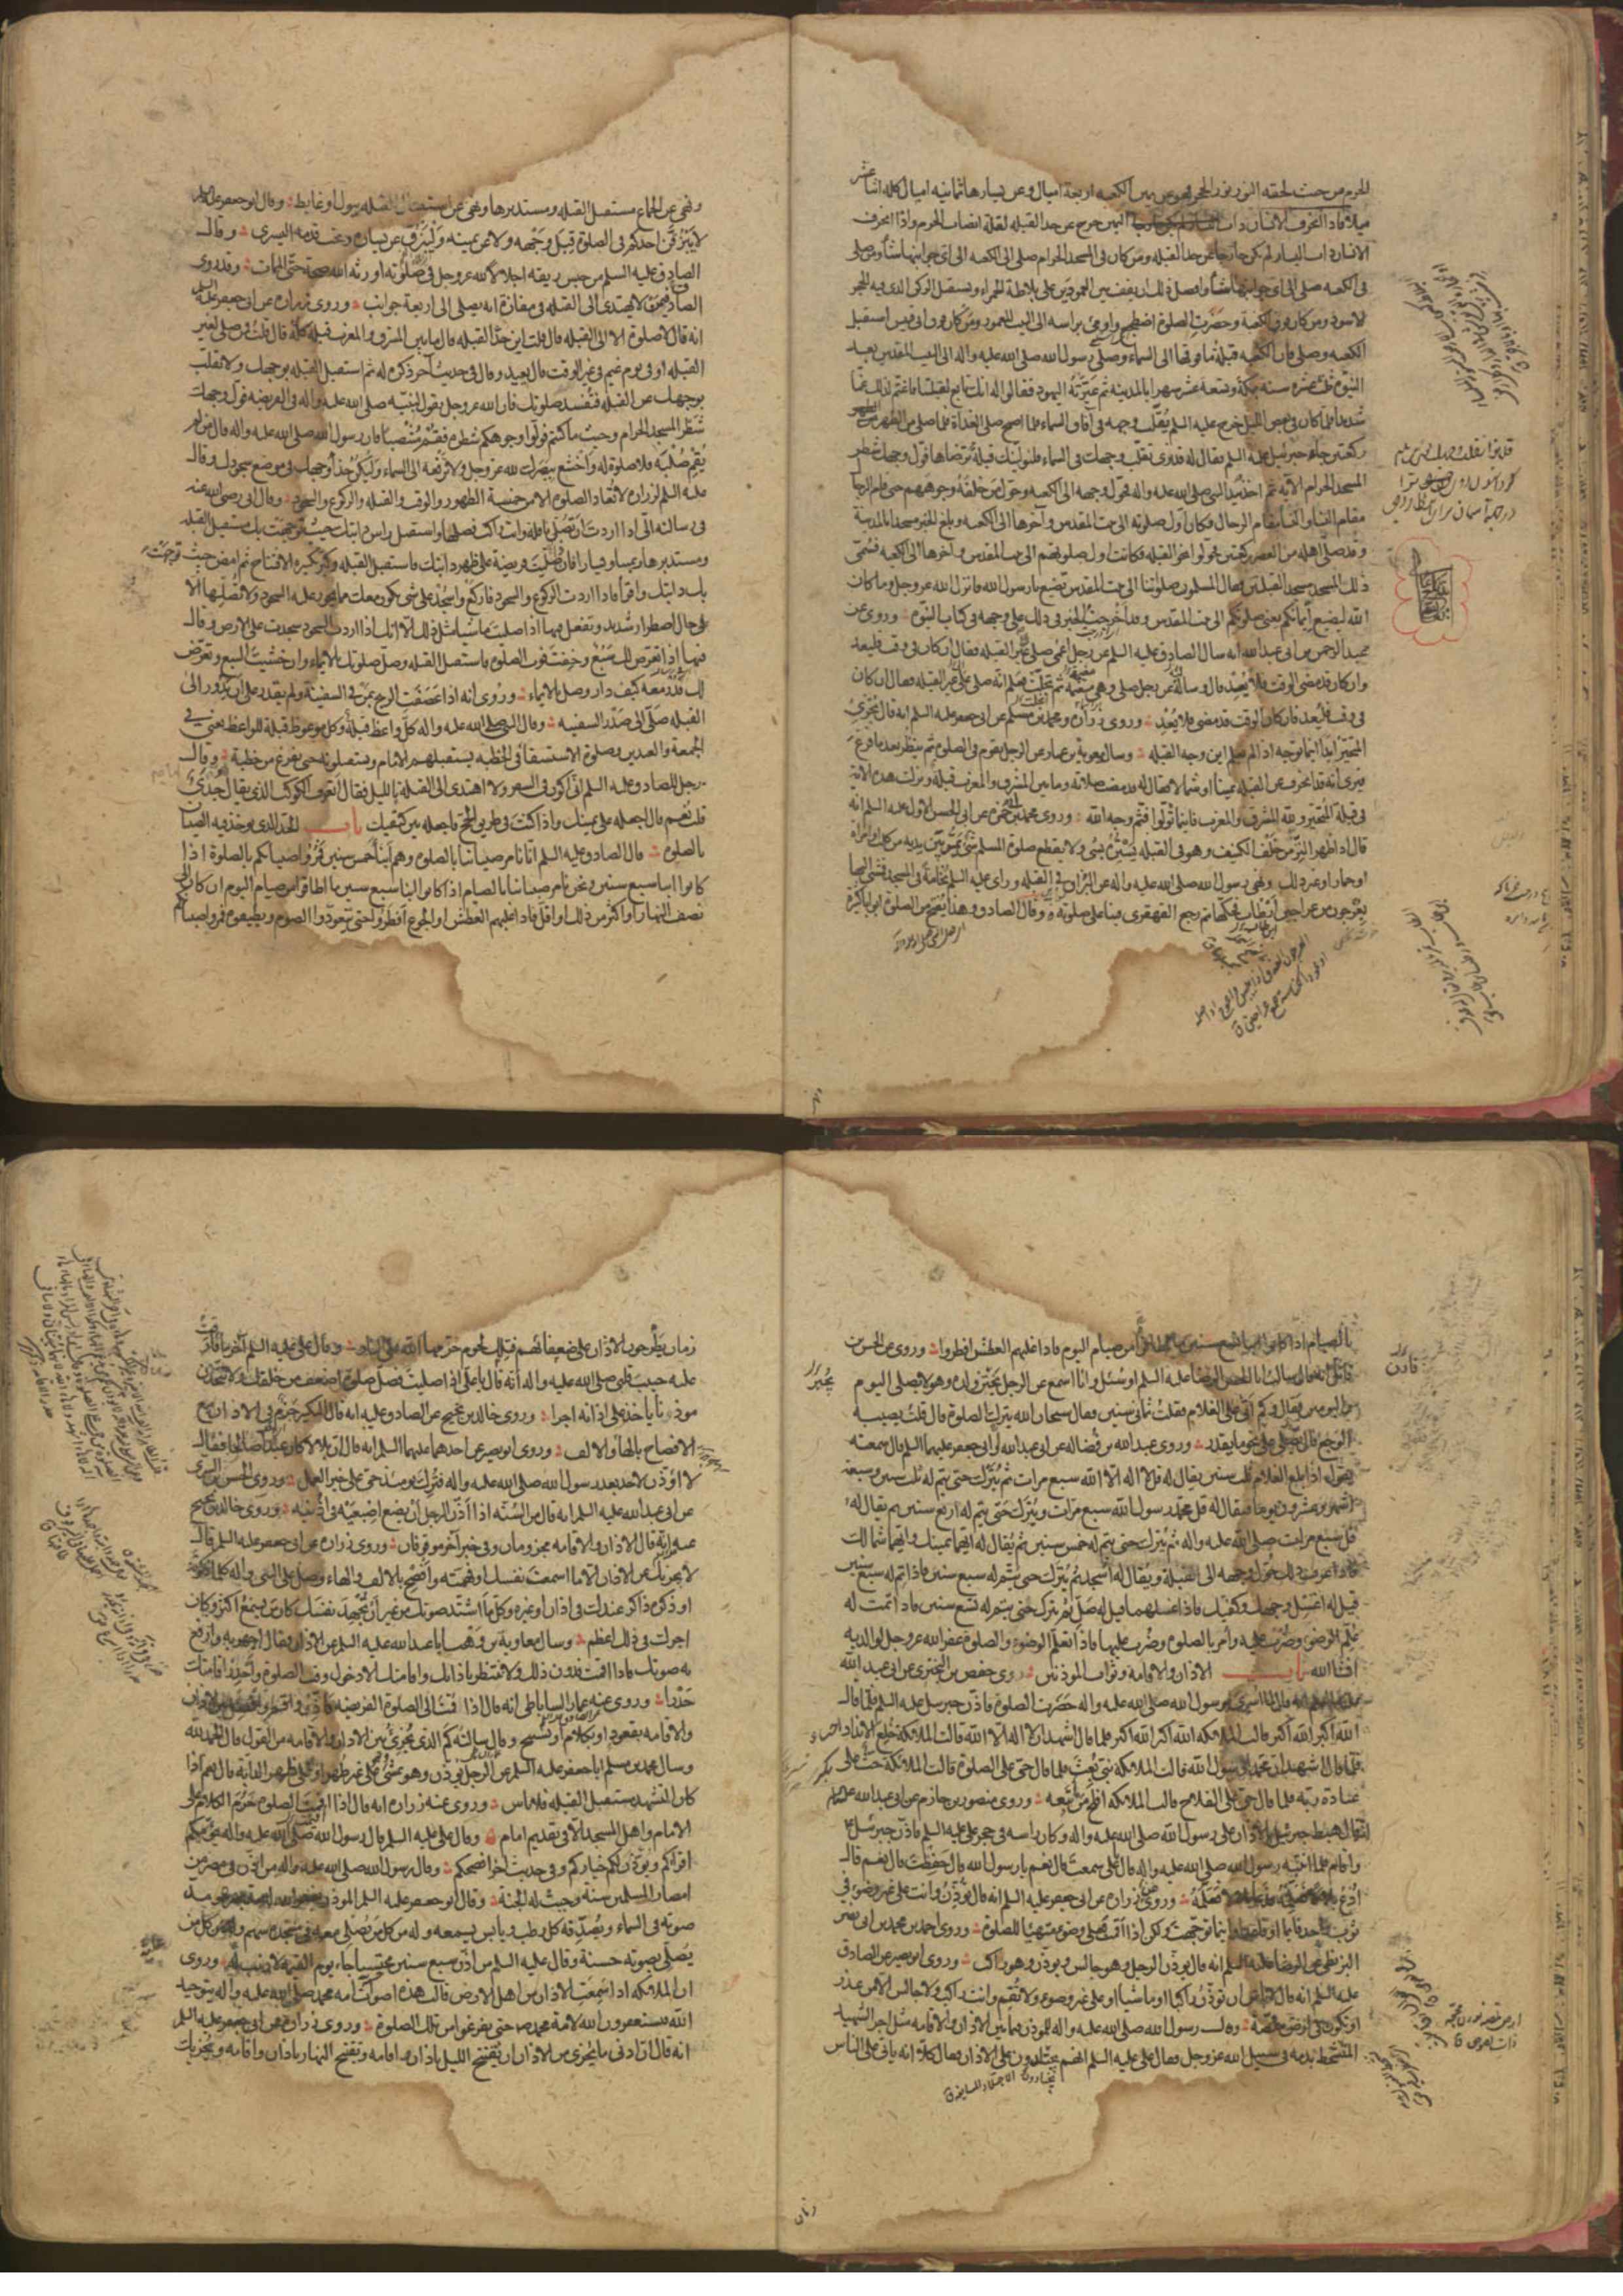 الحرم من حيث لحقه النور نور الحجر فهو عن يمين الكعبه اربعة اميال وعن يسارها ثمانيه اميال كله اثنا عشر
ميلا فاذا انحرف الانسان ذات اليمين خرج عن حد القبله لقلة انصاب الحرم واذا انحرف
الانسان ذات اليسار لم يكن خارجا عن حد القبله ومن كان في المسجد الحرام صلى الى الكعبه الى اي جوانبها شاء ومن صلى
في الكعبه صلى الى اي جوانبها شاء وافضل ذلك ان يقف بين العمودين على البلاطة الحمراء ويستقبل الركن الذي فيه الحجر
الاسود ومن كان فوق الكعبة وحضرت الصلوة اضطجع واومى براسه الى البيت المعمور ومن كان فوق ابي قبيس استقبل
الكعبه وصلى فان الكعبه قبلة ما فوقها الى السماء وصلى رسول الله صلى الله عليه واله الى البيت المقدس بعد
النبوة ثلث عشره سنه بمكة وتسعة عشر شهرا بالمدينه ثم عيرته اليهود فقالوا له انك تابع لقبلتنا فاغتم لذلك غما
شديدا فلما كان في بعض الليل خرج عليه السلم يقلب وجهه في آفاق السماء فلما اصبح صلى الغداة فلما صلى من الظهر
ركعتين جاءه جبرئيل عليه السلم فقال له قد نرى تقلب وجهك في السماء فلنولينك قبلة ترضاها فول وجهك شطر
المسجد الحرام الآيه ثم اخذ بيد النبي صلى الله عليه واله فحول وجهه الى الكعبه وحول من خلفه وجوههم حتى قام الرجال
مقام النساء والنساء مقام الرجال فكان اول صلوته الى بيت المقدس وآخرها الى الكعبه وبلغ الخبر مسجدا بالمدينة
وقد صلى اهله من العصر ركعتين فحولوا نحو القبله فكانت اول صلوتهم الى بيت المقدس وآخرها الى الكعبه فسمى
ذلك المسجد مسجد القبلتين فقال المسلمون صلوتنا الى بيت المقدس تضيع يا رسول الله فانزل الله عز وجل وما كان
الله ليضيع ايمانكم يعني صلوتكم الى بيت المقدس وقد اخرجت الخبر في ذلك على وجهه في كتاب النبوه وروى عن
عبد الرحمن بن ابي عبد الله انه سال الصادق عليه السلم عن رجل اعمى صلى على غير القبله فقال ان كان في وقت فليعد
وان كان قد مضى الوقت فلا يعيد قال وسالته عن رجل صلى وهي مغيمة ثم تجلت فعلم انه صلى على غير القبله فقال ان كان
في وقت فليعد فان كان الوقت قد مضى فلا يعد وروى زراره ومحمد بن مسلم عن ابي جعفر عليه السلم انه قال يجزي
المتحير ابدا اينما توجه اذا لم يعلم اين وجه القبله وسال معوية بن عمار عن الرجل يقوم في الصلوة ثم ينظر بعد ما فرغ
فيرى انه قد انحرف عن القبله يمينا او شمالا فقال له قد مضت صلاته وما بين المشرق والمغرب قبلة ونزلت هذه الآية
في قبلة المتحير ولله المشرق والمغرب فاينما تولوا فثم وجه الله وروى محمد بن ابي حمزه عن ابي الحسن الاول عليه السلم انه
قال اذا ظهر النز من خلف الكنيف وهو في القبله يستره بشئ ولا يقطع صلوة المسلم شئ يمر بين يديه من كلب او امراة
او حمار او غير ذلك ونهى رسول الله صلى الله عليه واله عن البزاق في القبله وراى عليه السلم نخامة في المسجد فمشى اليها
بعرجون من عراجين ابن طاب فحكها ثم رجع القهقرى فبنا على صلوته وقال الصادق وهذا يفتح من الصلوة ابوابا كثيرة
ونهى عن الجماع مستقبل القبله ومستدبرها ونهى عن استقبال القبله ببول او غايط وقال ابو جعفر عليه السلم
لا يبزقن احدكم في الصلوة قبل وجهه ولا عن يمينه وليبزق عن يساره وتحت قدمه اليسرى وقال
الصادق عليه السلم من حبس ريقه اجلالا لله عز وجل في صلوته اورثه الله صحة حتى الممات وقد روى
الصادق فيمن لا يهتدي الى القبله في مفازة انه يصلي الى اربعة جوانب وروى زراره عن ابي جعفر عليه السلم
انه قال لا صلوة الا الى القبله قال قلت اين حد القبله قال ما بين المشرق والمغرب قبله كله قال قلت فمن صلى لغير
القبله او في يوم غيم في غير الوقت قال يعيد وقال في حديث آخر ذكره له ثم استقبل القبله بوجهك ولا تقلب
بوجهك عن القبله فتفسد صلوتك فان الله عز وجل يقول لنبيه صلى الله عليه واله في الفريضه فول وجهك
شطر المسجد الحرام وحيث ما كنتم فولوا وجوهكم شطره فقم منتصبا فان رسول الله صلى الله عليه واله قال من لم
يقم صلبه فلا صلوة له واخشع ببصرك لله عز وجل ولا ترفعه الى السماء وليكن حذاء وجهك في موضع سجودك وقال
عليه السلم لزراره لا تعاد الصلوة الا من خمسة الطهور والوقت والقبله والركوع والسجود وقال ابي رضي الله عنه
في رسالته الي اذا اردت ان تصلي نافله وانت راكب فصلها واستقبل راس دابتك حيث توجهت بك مستقبل القبله
ومستدبرها ويمينا ويسارا فان صليت فريضة على ظهر دابتك فاستقبل القبله وكبر تكبيره الافتتاح ثم امض حيث توجهت
بك دابتك واقرا فاذا اردت الركوع والسجود فاركع واسجد على شئ يكون معك مما يجوز عليه السجود ولا تصلها الا
على حال اضطرار شديد وتفعل فيها اذا صليت ماشيا مثل ذلك الا انك اذا اردت السجود سجدت على الارض وقال
فيها اذا تعرض لك سبع وخفت فوت الصلوة فاستقبل القبله وصل صلوتك بالايماء وان خشيت السبع وتعرض
لك فدر معه كيف دار وصل بالايماء وروى انه اذا عصفت الريح بمن في السفينة ولم يقدر على ان يدور الى
القبله صلى الى صدر السفينه وقال النبي صلى الله عليه واله كل واعظ قبلة وكل موعوظ قبلة للواعظ يعني في
الجمعة والعيدين وصلوة الاستسقا في الخطبه يستقبلهم الامام ويستقبلونه حتى يفرغ من خطبة وقال
رجل للصادق عليه السلم اني اكون في السفر ولا اهتدي الى القبلة بالليل فقال اتعرف الكوكب الذي يقال جدي
قلت نعم قال اجعله على يمينك واذا كنت في طريق الحج فاجعله بين كتفيك باب الحد الذي يوخذ فيه الصبيان
بالصلوة قال الصادق عليه السلم انا نامر صبياننا بالصلوة وهم ابنا خمس سنين فمروا صبيانكم بالصلوة اذا
كانوا ابنا سبع سنين ونحن نامر صبياننا بالصيام اذا كانوا ابنا سبع سنين ما اطاقوا من صيام اليوم ان كان الى
نصف النهار او اكثر من ذلك او اقل فاذا غلبهم العطش او الجوع افطروا حتى يتعودوا الصوم ويطيقوه فمروا صبيانكم
بالصيام اذا كانوا ابنا تسع سنين ما اطاقوا من صيام اليوم فاذا غلبهم العطش افطروا وروى عن الحسن بن
قارن انه قال سالت ابا الحسن الرضا عليه السلم او سئل وانا اسمع عن الرجل يجبر ولده وهو لا يصلي اليوم
واليومين فقال وكم اتى على الغلام فقلت ثماني سنين فقال سبحان الله يترك الصلوة قال قلت يصيبه
الوجع قال يصلي على نحو ما يقدر وروى عبد الله بن فضاله عن ابي عبد الله او ابي جعفر عليهما السلم قال سمعته
يقول اذا بلغ الغلام ثلث سنين يقال له قل لا اله الا الله سبع مرات ثم يترك حتى يتم له ثلث سنين وسبعة
اشهر وعشرون يوما فيقال له قل محمد رسول الله سبع مرات ويترك حتى يتم له اربع سنين ثم يقال له
قل سبع مرات صلى الله عليه واله ثم يترك حتى يتم له خمس سنين ثم يقال له ايهما يمينك وايهما شمالك
فاذا عرف ذلك حول وجهه الى القبلة ويقال له اسجد ثم يترك حتى يتم له سبع سنين فاذا تم له سبع سنين
قيل له اغسل وجهك وكفيك فاذا غسلهما قيل له صل ثم يترك حتى يتم له تسع سنين فاذا تمت له
علم الوضوء وضرب عليه وامر بالصلوة وضرب عليها فاذا تعلم الوضوء والصلوة غفر الله عز وجل لوالديه
ان شا الله باب الاذان والاقامة وثواب الموذنين روى حفص بن البختري عن ابي عبد الله
انه قال لما اسري برسول الله صلى الله عليه واله حضرت الصلوة فاذن جبرئيل عليه السلم فلما قال
الله اكبر الله اكبر قالت الملائكه الله اكبر الله اكبر فلما قال اشهد ان لا اله الا الله قالت الملائكة خلع الانداد
فلما قال اشهد ان محمدا رسول الله قالت الملائكة نبي بعث فلما قال حي على الصلوة قالت الملائكة حث على
عبادة ربه فلما قال حي على الفلاح قالت الملائكه افلح من تبعه وروى منصور بن حازم عن ابي عبد الله عليه السلم
قال هبط جبرئيل بالاذان على رسول الله صلى الله عليه واله وكان راسه في حجر علي عليه السلم فاذن جبرئيل
واقام فلما انتبه رسول الله صلى الله عليه واله قال يا علي سمعت قال نعم يا رسول الله قال حفظت قال نعم قال
ادع بلالا فعلمه وروى زراره عن ابي جعفر عليه السلم انه قال تؤذن وانت على غير وضوء في
ثوب واحد قايما او قاعدا واينما توجهت ولكن اذا اقمت فعلى وضوء متهيئا للصلوة وروى احمد بن محمد بن ابي نصر
البزنطي عن الرضا عليه السلم انه قال يؤذن الرجل وهو جالس ويؤذن وهو راكب وروى ابو بصير عن الصادق
عليه السلم انه قال لا باس ان تؤذن راكبا او ماشيا او على غير وضوء ولا تقم وانت راكب ولا جالس الا من عذر
او تكون في ارض ملصة وقال رسول الله صلى الله عليه واله للموذن فيما بين الاذان والاقامه مثل اجر الشهيد
المتشحط بدمه في سبيل الله عز وجل فقال علي عليه السلم انهم يجتلدون على الاذان فقال كلا انه ياتي على الناس
زمان يطرحون الاذان على ضعفائهم فتلك لحوم حرمها الله على النار وقال علي عليه السلم آخر ما فارقت
عليه حبيب قلبي صلى الله عليه واله انه قال يا علي اذا صليت فصل صلوة اضعف من خلفك ولا تتخذن
موذنا ياخذ على اذانه اجرا وروى خالد بن نجيح عن الصادق عليه السلم انه قال التكبير جزم في الاذان مع
الافصاح بالهاء والالف وروى ابو بصير عن احدهما عليهما السلم انه قال ان بلالا كان عبدا صالحا فقال
لا اؤذن لاحد بعد رسول الله صلى الله عليه واله فترك يومئذ حي على خير العمل وروى الحسن بن السري
عن ابي عبد الله عليه السلم انه قال من السنة اذا اذن الرجل ان يضع اصبعيه في اذنيه وروى خالد بن نجيح
عنه انه قال الاذان والاقامه مجزومان وفي خبر آخر موقوفان وروى زراره عن ابي جعفر عليه السلم قال
لا يجزيك من الاذان الا ما اسمعت نفسك او فهمته وافصح بالالف والهاء وصل على النبي واله كلما ذكرته
او ذكره ذاكر عندك في اذان او غيره وكل ما اشتد صوتك من غير ان تجهد نفسك كان من يسمع اكثر وكان
اجرك في ذلك اعظم وسال معاوية بن وهب ابا عبد الله عليه السلم عن الاذان فقال اجهر به وارفع
به صوتك فاذا اقمت فدون ذلك ولا تنتظر باذانك واقامتك الا دخول وقت الصلوة واحدر اقامتك
حدرا وروى عنه عمار الساباطي انه قال اذا قمت الى الصلوة الفريضه فاذن واقم وافصل بين الاذان
والاقامه بقعود او بكلام او تسبيح وقال سالته كم الذي يجزئ بين الاذان والاقامه من القول قال الحمد لله
وسال محمد بن مسلم ابا جعفر عليه السلم عن الرجل يؤذن وهو يمشي وعلى غير طهر او على ظهر الدابة قال نعم اذا
كان التشهد مستقبل القبله فلا باس وروى عنه زراره انه قال اذا اقيمت الصلوة حرم الكلام على
الامام واهل المسجد الا في تقديم امام وقال علي عليه السلم قال رسول الله صلى الله عليه واله يؤمكم
اقراكم ويؤذن لكم خياركم وفي حديث آخر افصحكم وقال رسول الله صلى الله عليه واله من اذن في مصر من
امصار المسلمين سنة وجبت له الجنة وقال ابو جعفر عليه السلم الموذن يغفر الله له
صوته في السماء ويصدقه كل رطب ويابس يسمعه وله من كل من يصلي معه في مسجده سهم وله من كل من
يصلي بصوته حسنة وقال عليه السلم من اذن سبع سنين محتسبا جاء يوم القيمة لا ذنب له وروى
ان الملائكه اذا سمعت الاذان من اهل الارض قالت هذه اصوات امه محمد صلى الله عليه واله بتوحيد
الله فيستغفرون الله لامة محمد حتى يفرغوا من تلك الصلوة وروى زراره عن ابي جعفر عليه السلم
انه قال ان ادنى ما يجزي من الاذان ان يفتتح الليل باذان واقامه ويفتتح النهار باذان واقامه ويجزيك